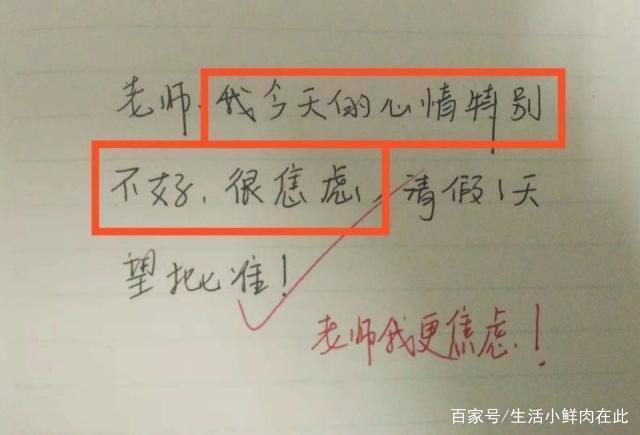 老师，我今天的心情特别
不好，很焦虑，请假1天
望批准！
老师我更焦虑！
百家号/生活小鲜肉在此